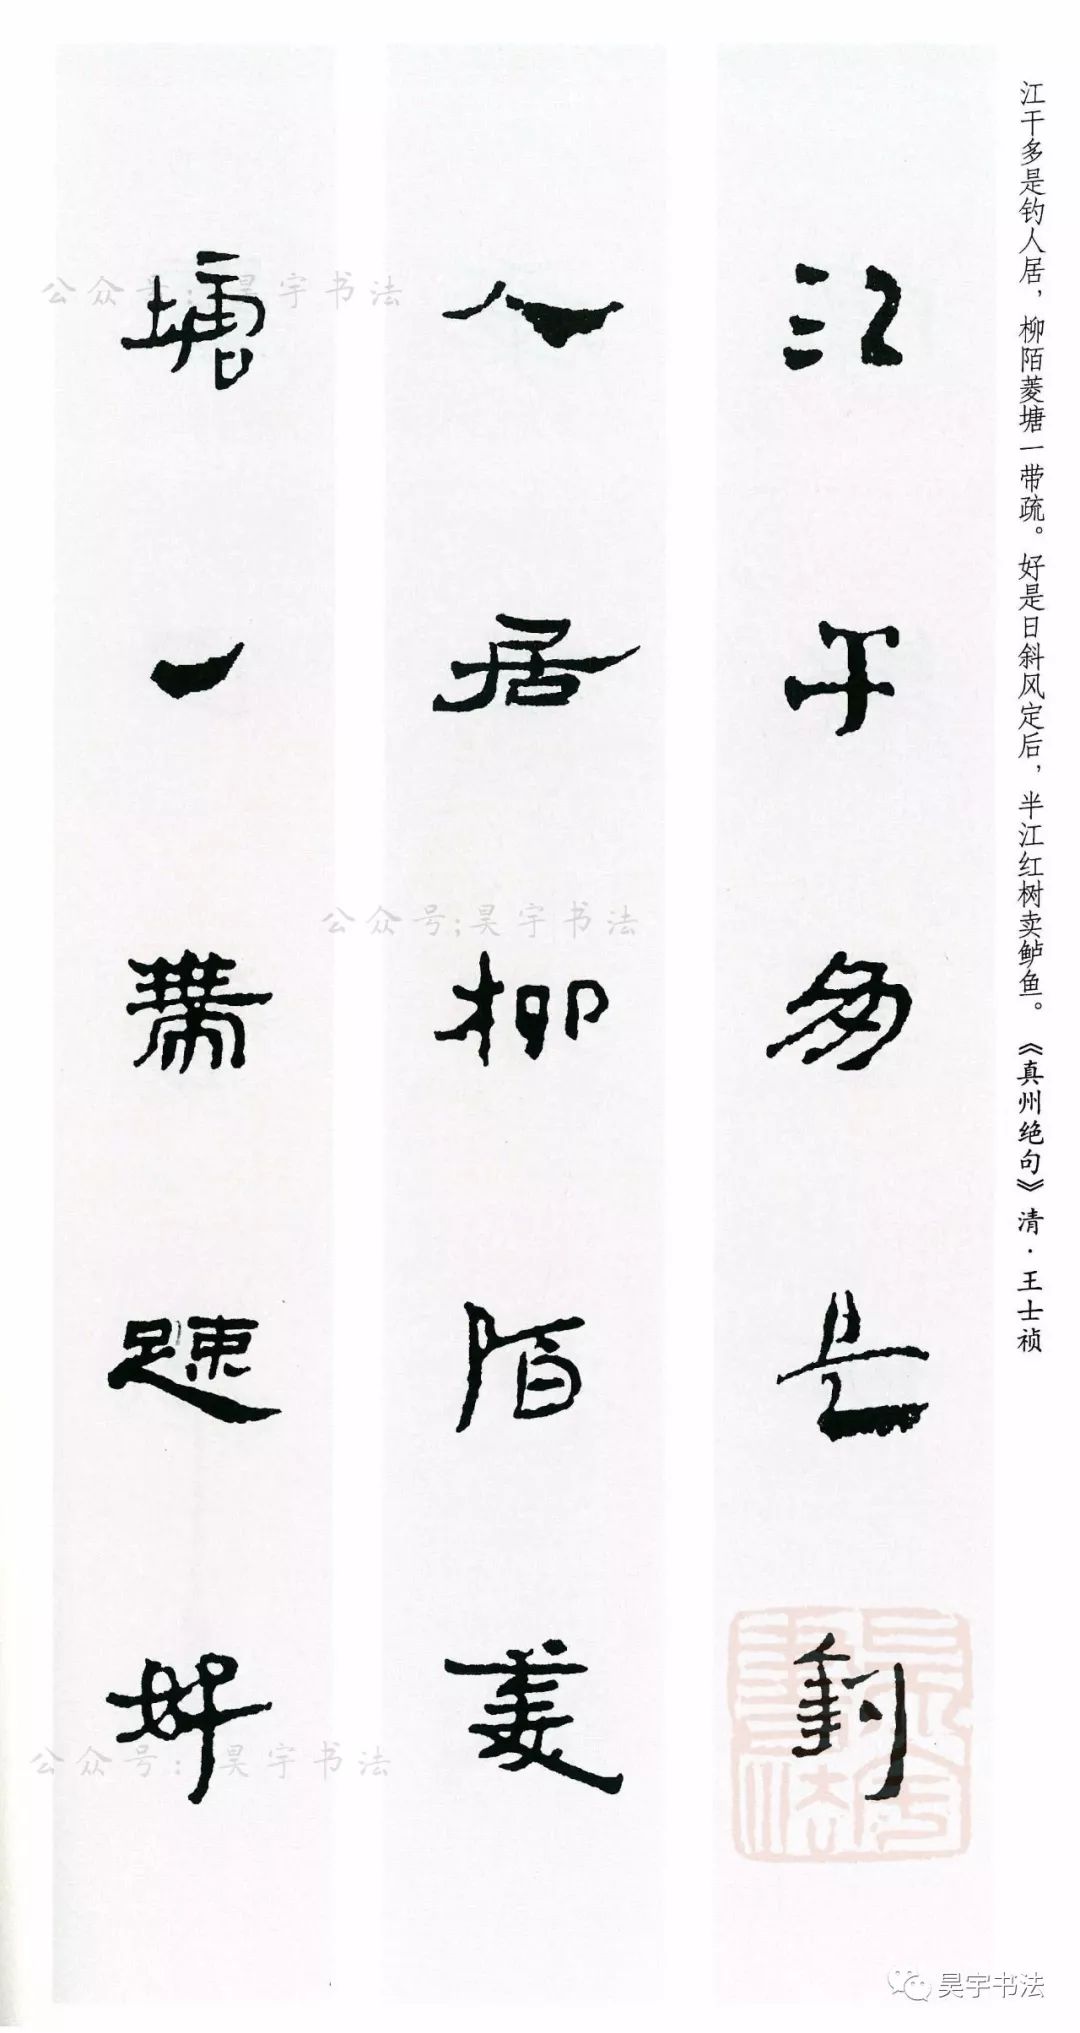 江干多是钓人居，柳陌菱塘一带疏。好是日斜风定后，半江红树卖鲈鱼。《真州绝句》清·王士祯
江干多是釣
人居柳陌菱
塘一帶疎好
公众号;昊宇书法
公众号;昊宇书法
公众号;昊宇书法
昊宇书法
昊宇书法